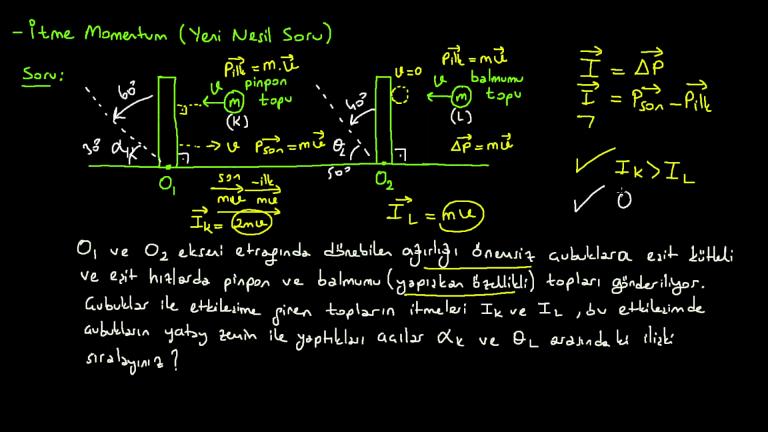 - İtme Momentum (Yeni Nesil Soru)
Soru:
60°
30°
αK
O1
Pilk = m.v
v pinpon topu
m
(K)
v Pson = mv
son -ilk
mv mv
IK = 2mv
40°
θL
50°
O2
v=0
Pilk = mv
v balmumu topu
m
(L)
ΔP = mv
IL = mv
I = ΔP
I = Pson - Pilk
IK > IL
O1 ve O2 ekseni etrafında dönebilen ağırlığı önemsiz çubuklara eşit kütleli
ve eşit hızlarda pinpon ve balmumu (yapışkan özellikli) topları gönderiliyor.
Çubuklar ile etkileşime giren topların itmeleri IK ve IL, bu etkileşimde
çubukların yatay zemin ile yaptıkları açılar αK ve θL arasındaki ilişki
sıralayınız?